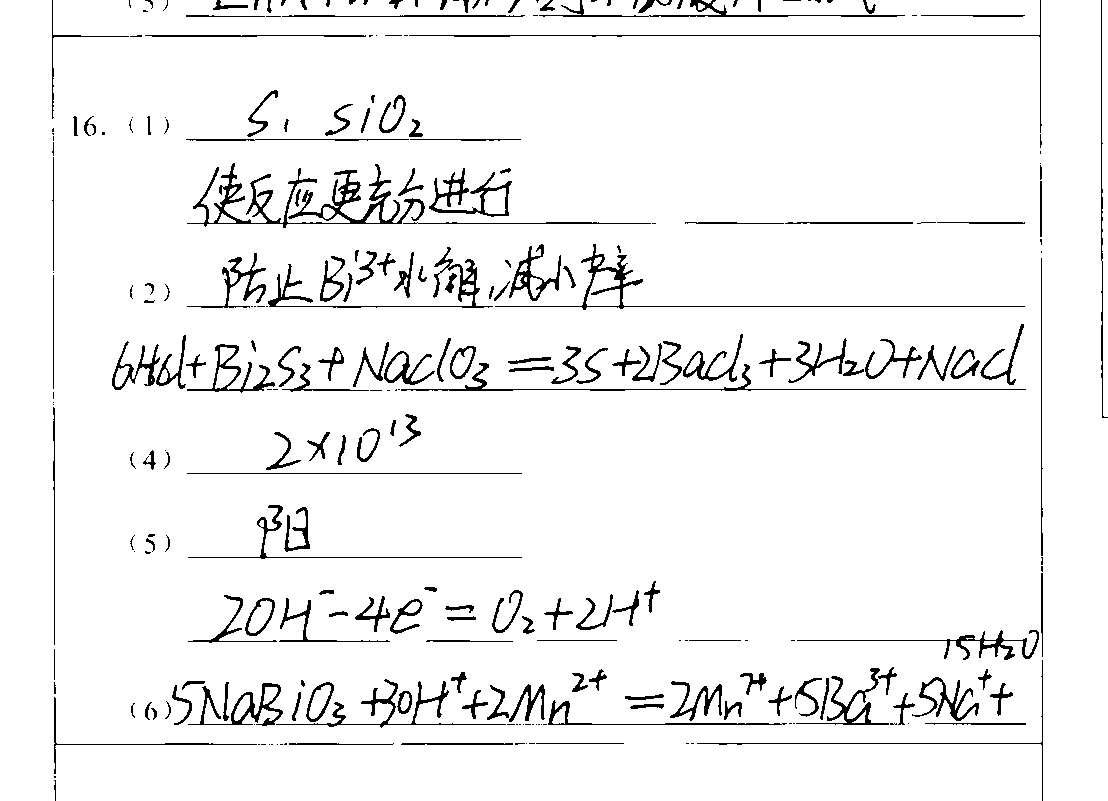 16. (1) S, SiO₂
使反应更充分进行
(2) 防止Bi³⁺水解,减小
6HCl+Bi₂S₃+NaClO₃=3S+2BaCl₃+3H₂O+NaCl
(4) 2×10¹³
(5) 阳
2OH⁻-4e⁻=O₂+2H⁺
15H₂O
(6) 5NaBiO₃+30H⁺+2Mn²⁺=2Mn⁷⁺+5Ba³⁺+5Na⁺+